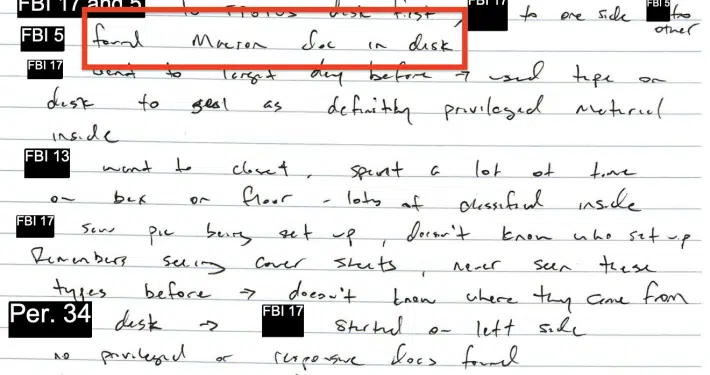 FBI 17 and 5 to FPOTUS desk first, FBI 17 to one side FBI 5 to other
FBI 5 found Macron doc in desk
FBI 17 went to target day before → used tape on
desk to seal as definitely privileged material
inside
FBI 13 went to closet, spent a lot of time
on box on floor - lots of classified inside
FBI 17 saw pic being set up, doesn't know who set up
Remembers seeing cover sheets, never seen these
types before → doesn't know where they came from
Per. 34 desk → FBI 17 started on left side
no privileged or responsive docs found